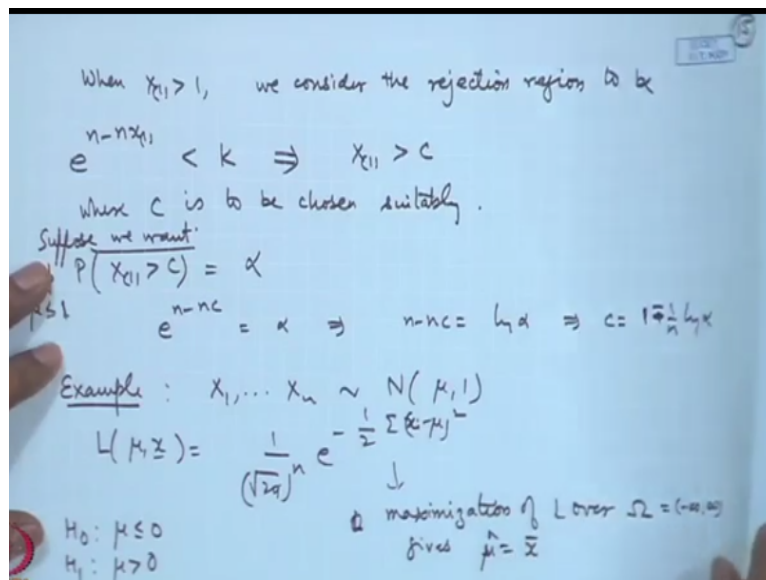 When x₍₁₎ > 1, we consider the rejection region to be
e^{n-nx₍₁₎} < k ⇒ x₍₁₎ > c
where c is to be chosen suitably.
Suppose we want
P(X₍₁₎ > c) = α
μ≤1
e^{n-nc} = α ⇒ n-nc = log α ⇒ c = 1 - 1/n log α
Example : X₁, ... Xₙ ~ N(μ, 1)
L(μ, x) = 1/(√2π)ⁿ e^{-1/2 Σ(xᵢ-μ)²}
↓
maximization of L over Ω = (-∞, ∞)
gives μ̂ = x̄
H₀: μ ≤ 0
H₁: μ > 0